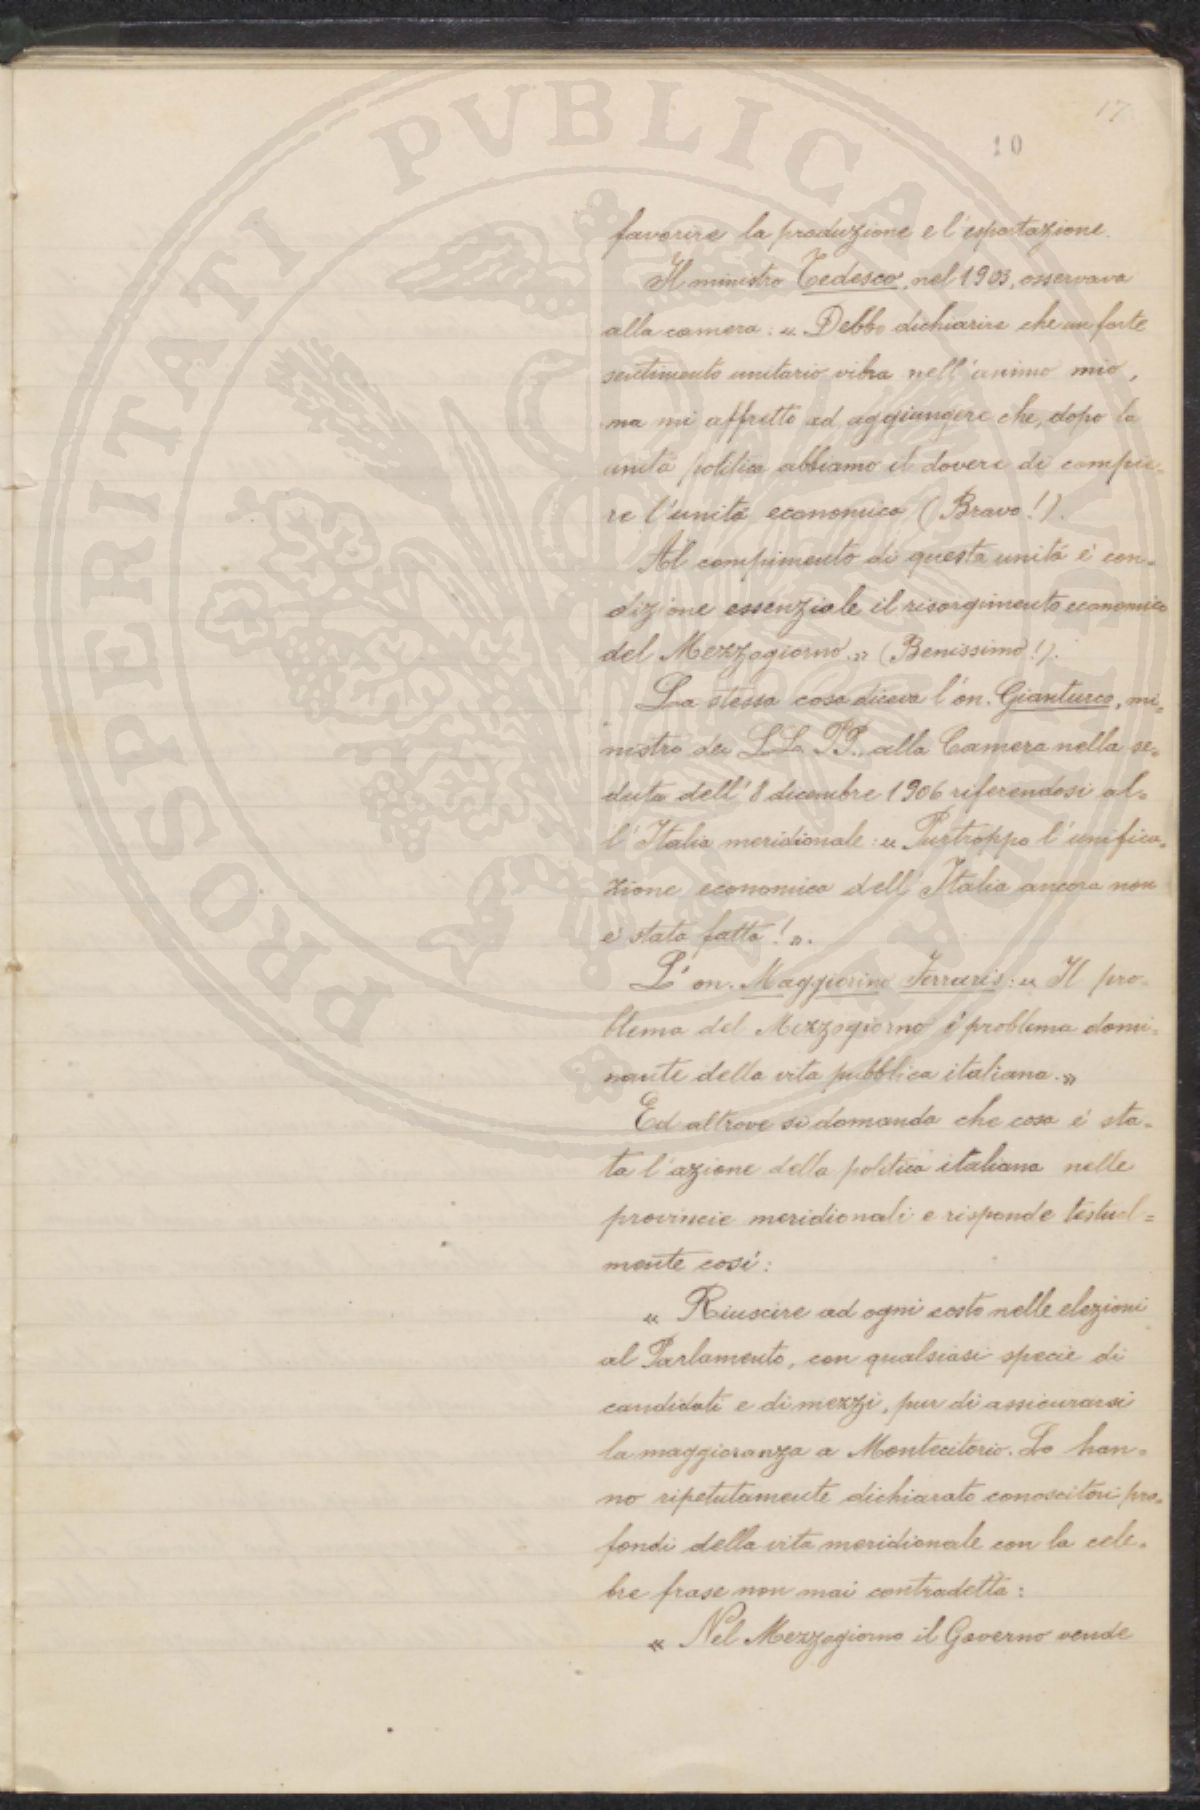 17
10
favorire la produzione e l'esportazione.
Il ministro Tedesco, nel 1903, osservava
alla camera: « Debbo dichiarire che un forte
sentimento unitario vibra nell'animo mio,
ma mi affretto ad aggiungere che, dopo la
unità politica abbiamo il dovere di compie-
re l'unità economica (Bravo!).
Al compimento di questa unità è con-
dizione essenziale il risorgimento economico
del Mezzogiorno.» (Benissimo!).
La stessa cosa diceva l'on. Gianturco, mi-
nistro dei LL. PP., alla Camera nella se-
duta dell'8 dicembre 1906 riferendosi al-
l'Italia meridionale: « Purtroppo l'unifica-
zione economica dell'Italia ancora non
è stata fatta! ».
L'on. Maggiorino Ferraris: « Il pro-
blema del Mezzogiorno è problema domi-
nante della vita pubblica italiana.»
Ed altrove si domanda che cosa è sta-
ta l'azione della politica italiana nelle
provincie meridionali e risponde testual=
mente così:
« Riuscire ad ogni costo nelle elezioni
al Parlamento, con qualsiasi specie di
candidati e di mezzi, pur di assicurarsi
la maggioranza a Montecitorio. Lo han-
no ripetutamente dichiarato conoscitori pro-
fondi della vita meridionale con la cele-
bre frase non mai contradetta:
« Nel Mezzogiorno il Governo vende
PROSPERITATI PVBLICAE AVGENDAE